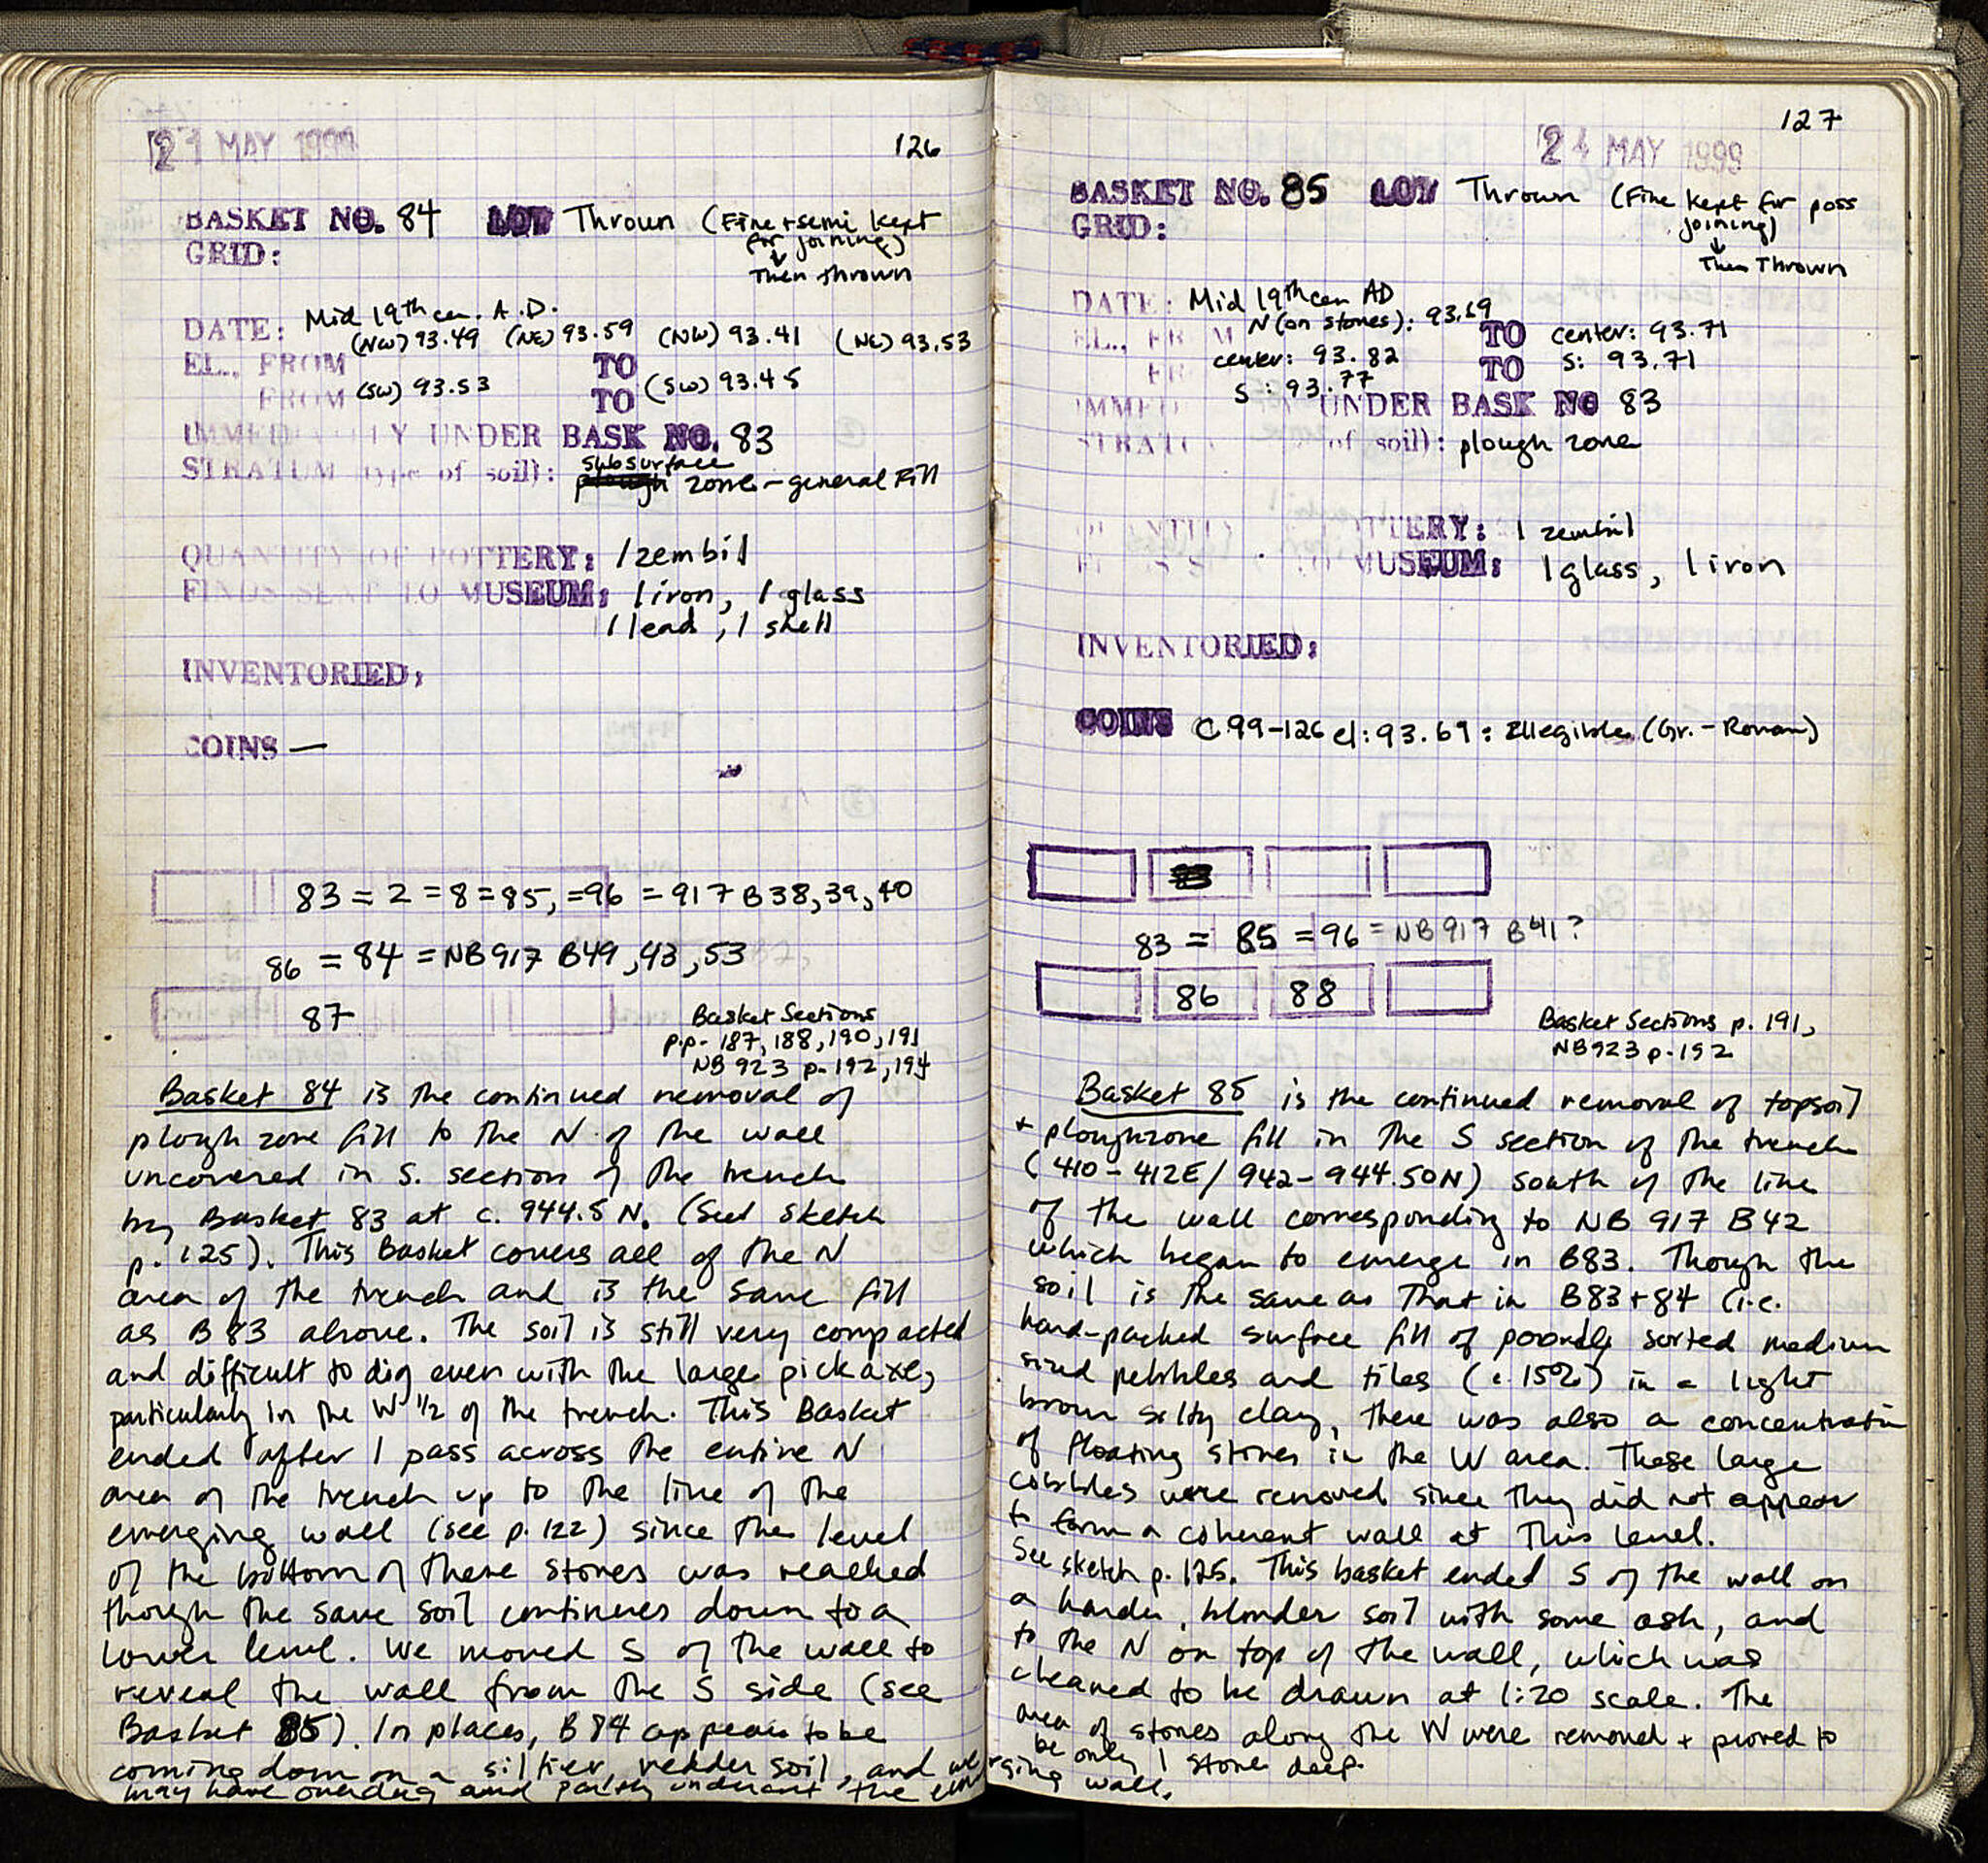 126
MAY 1999
BASKET NO. 84 LOT Thrown (Fine + semi kept
for joining)
↓
Then thrown
GRID:
DATE: Mid 19th cen. A.D.
(NW) 93.49 (NE) 93.59 (NW) 93.41 (NE) 93.53
EL., FROM TO
FROM (SW) 93.53 TO (SW) 93.45
IMMEDIATELY UNDER BASK NO. 83
STRATUM (type of soil): subsurface
plough zone - general fill
QUANTITY OF POTTERY: 1 zembil
FINDS SENT TO MUSEUM: 1 iron, 1 glass
1 lead, 1 shell
INVENTORIED:
COINS —
83 = 2 = 8 = 85, = 96 = 917 B38, 39, 40
86 = 84 = NB917 B49, 43, 53
87
Basket Sections
p.p. 187, 188, 190, 191
NB 923 p. 192, 194
Basket 84 is the continued removal of
plough zone fill to the N of the wall
uncovered in S. section of the trench
by Basket 83 at c. 944.5 N. (See sketch
p. 125). This Basket covers all of the N
area of the trench and is the same fill
as B83 above. The soil is still very compacted
and difficult to dig even with the large pick axe,
particularly in the W 1/2 of the trench. This Basket
ended after 1 pass across the entire N
area of the trench up to the line of the
emerging wall (see p. 122) since the level
of the bottom of these stones was reached
though the same soil continues down to a
lower level. We moved S of the wall to
reveal the wall from the S side (see
Basket 85). In places, B84 appears to be
coming down on a siltier, redder soil, and we
may have overdug and partly undercut the emerging wall.
127
24 MAY 1999
BASKET NO. 85 LOT Thrown (Fine kept for poss
joining)
↓
Then Thrown
GRID:
DATE: Mid 19th cen AD
N (on stones): 93.69 TO center: 93.71
EL., FROM center: 93.82 TO S: 93.71
S: 93.77
UNDER BASK NO 83
STRATUM of soil): plough zone
QUANTITY POTTERY: 1 zembil
MUSEUM: 1 glass, 1 iron
INVENTORIED:
COINS C 99-126 el: 93.69: Illegible (Gr. - Roman)
83 = 85 = 96 = NB 917 B41?
86 88
Basket Sections p. 191,
NB923 p. 192
Basket 85 is the continued removal of topsoil
+ ploughzone fill in the S section of the trench
(410-412E / 942-944.50N) south of the line
of the wall corresponding to NB 917 B42
which began to emerge in B83. Though the
soil is the same as that in B83+84 (i.e.
hard-packed surface fill of poorly sorted medium
sized pebbles and tiles (c. 15%) in a light
brown silty clay, there was also a concentration
of floating stones in the W area. These large
cobbles were removed since they did not appear
to form a coherent wall at this level.
See sketch p. 125. This basket ended S of the wall on
a harder, blonder soil with some ash, and
to the N on top of the wall, which was
cleaned to be drawn at 1:20 scale. The
area of stones along the W were removed + proved to
be only 1 stone deep.